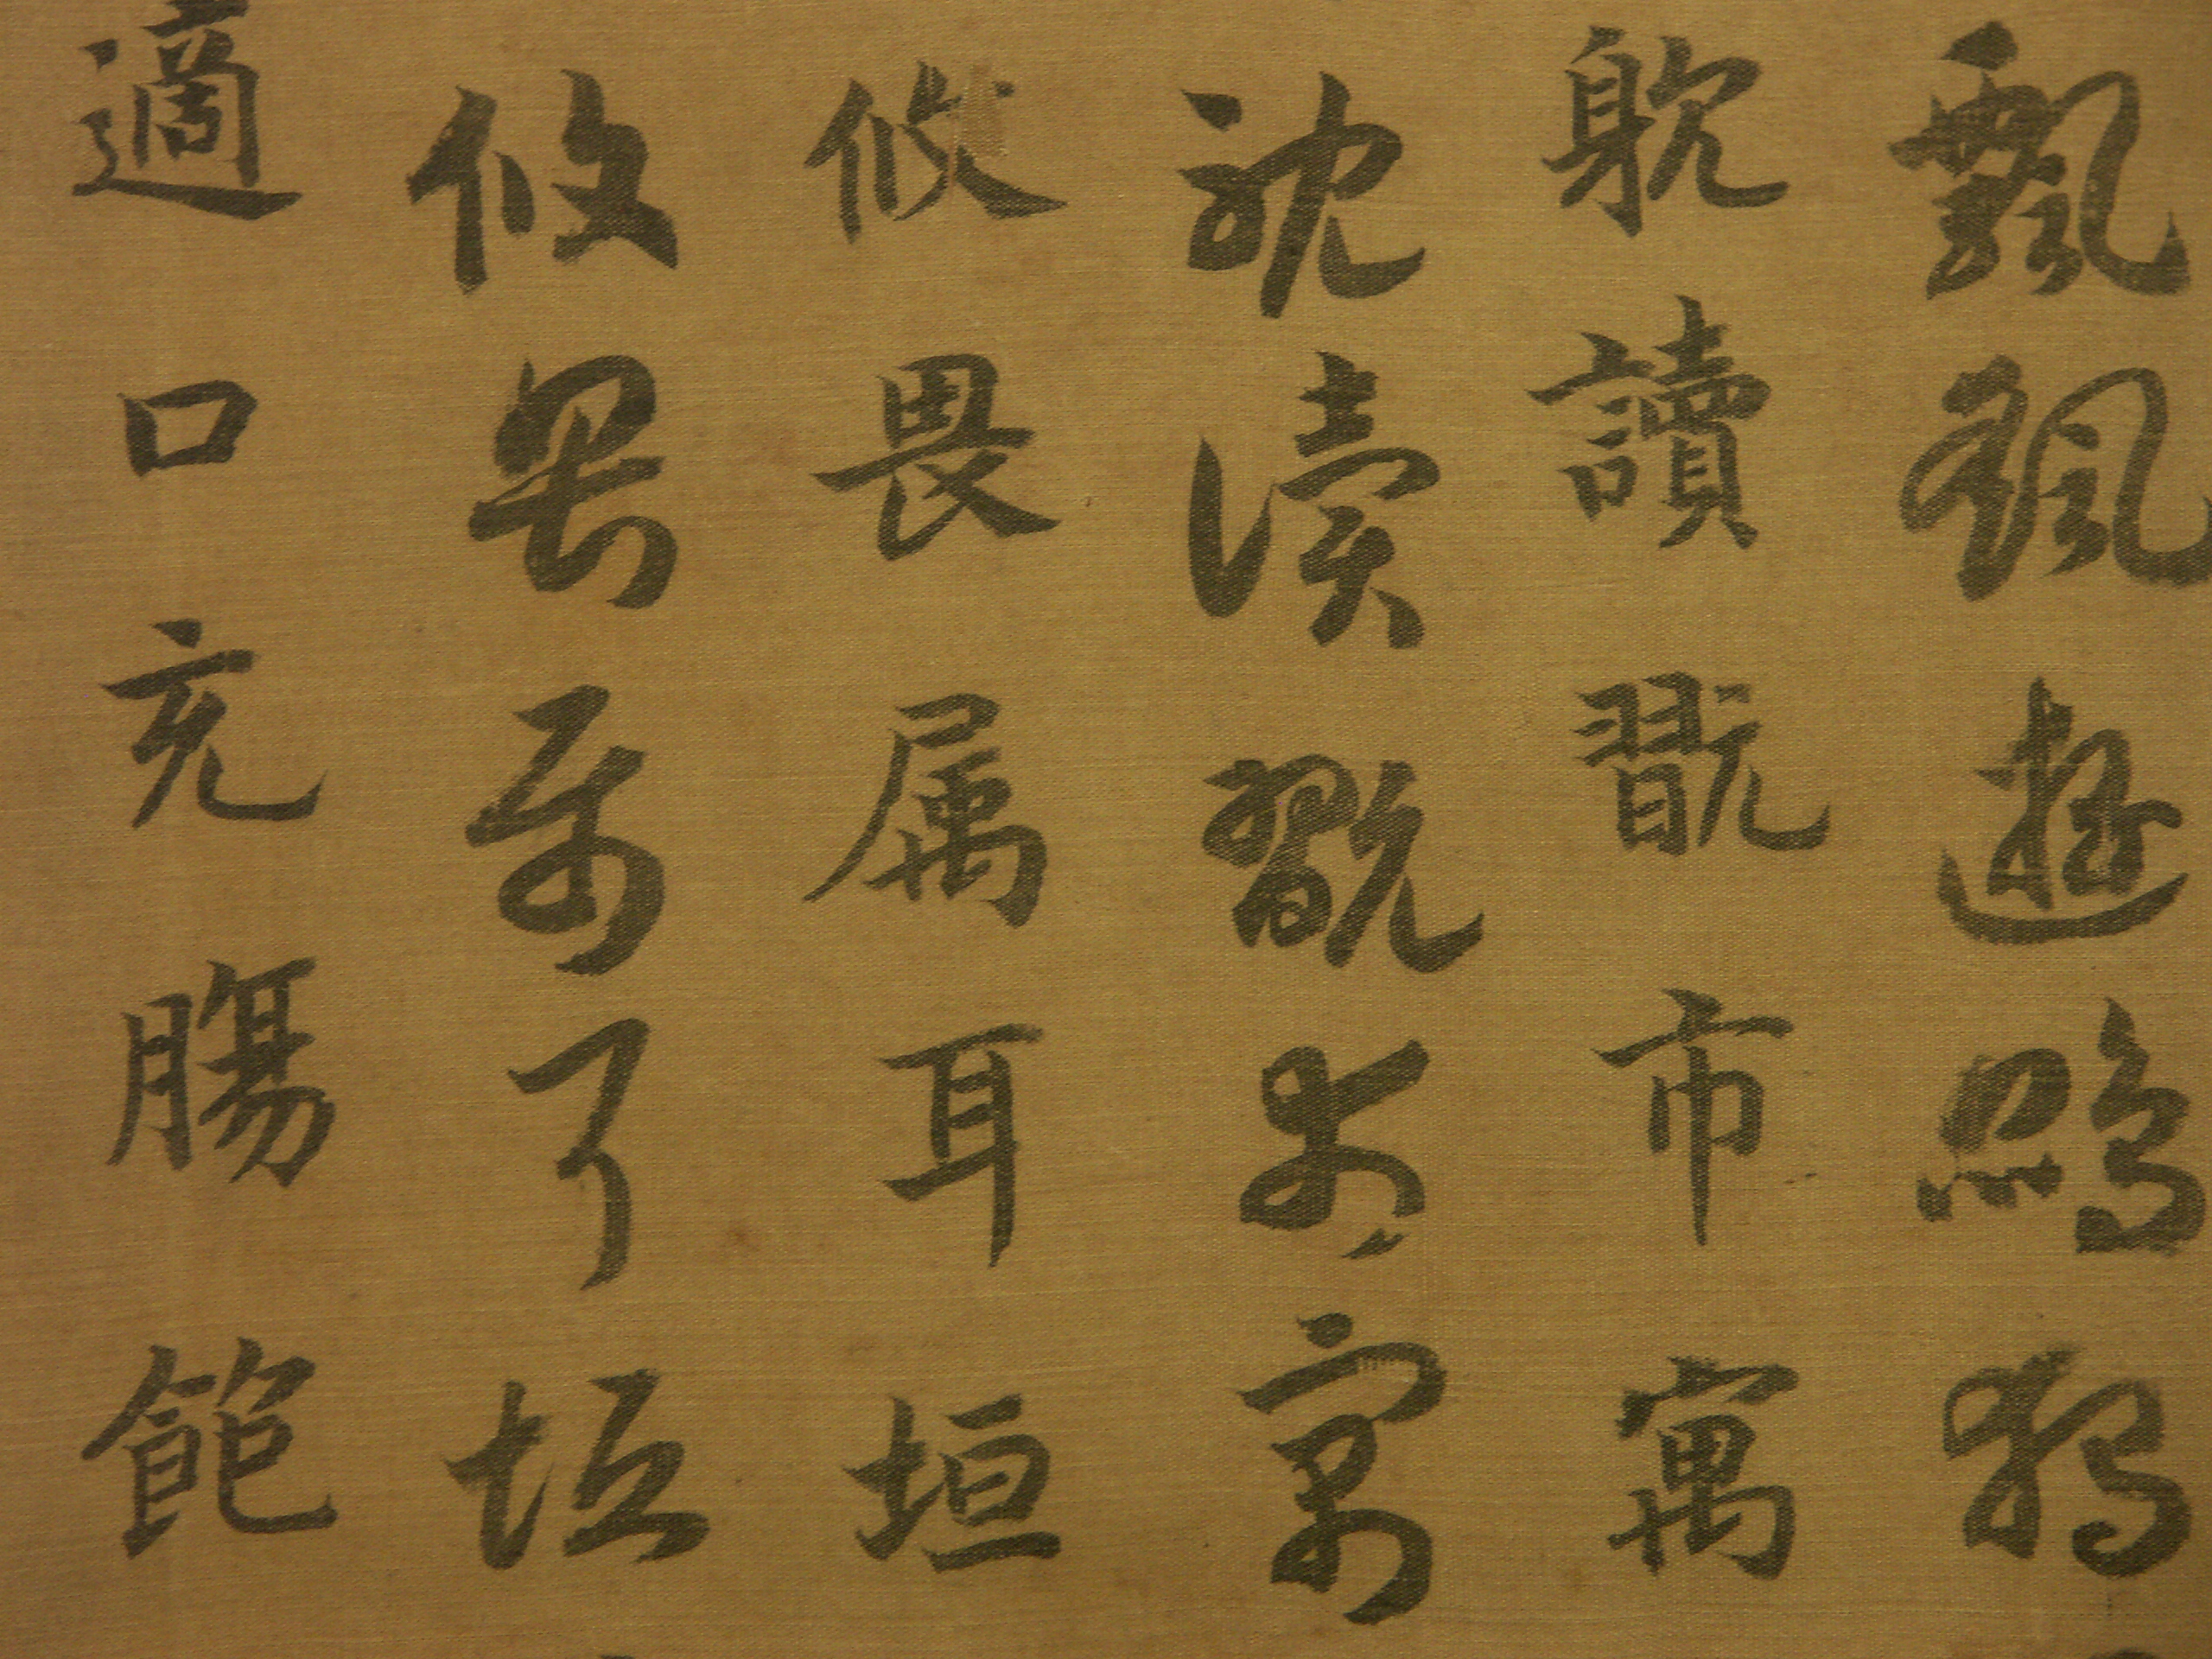 飄颻遊鵾獨
躭讀翫市寓
躭讀翫市寓
攸畏属耳垣
攸畏属耳垣
適口充腸飽